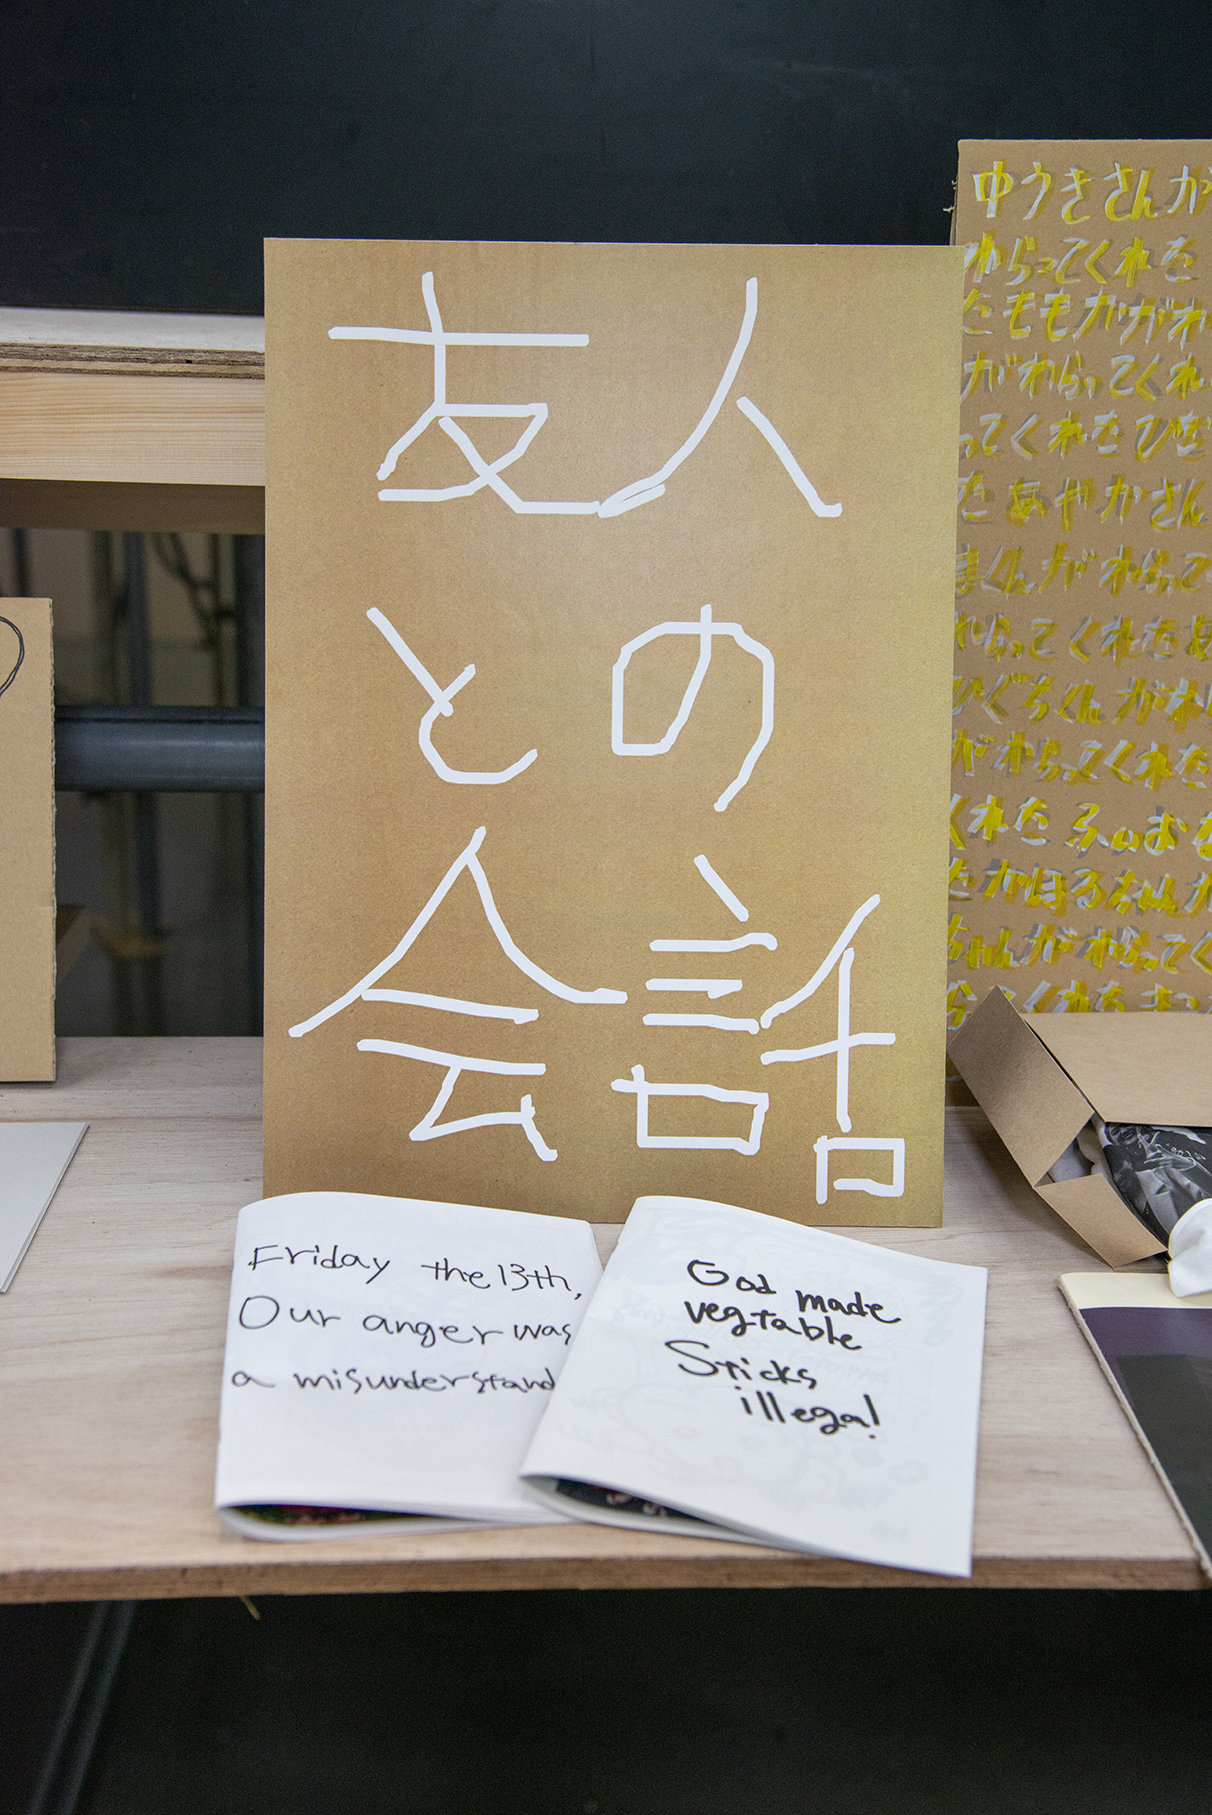 友人
との
会話
Friday the 13th,
Our anger was
a misunderstand
God made
vegtable
Sticks
illegal
ゆうきさんが
わらってくれた
たももかがわ
がわらってくれ
ってくれたひ
たあやかさん
まくんがわらって
わらってくれたあ
ひぐちくんがわ
がわらってくれた
くれたふ
たかほるちゃんが
ちゃんがわらってく
らってくれた